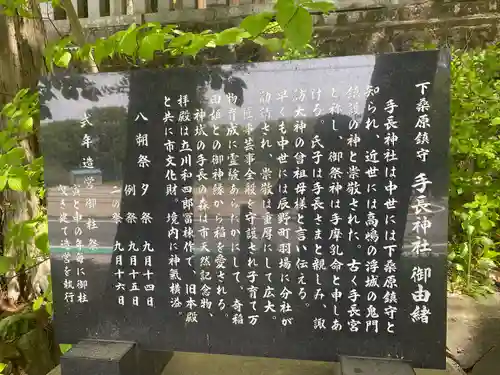 下桑原鎮守 手長神社 御由緒
手長神社は中世には下桑原鎮守と
知られ、近世には高嶋の浮城の鬼門
鎮護の神と崇敬された。古く手長宮
と称し、御祭神は手摩乳命と申しあ
げる。氏子は手長さまと親しみ、諏
訪大神の曽祖母様と言い伝える。
早くも中世には辰野町羽場に分社が
勧請され、崇敬は重厚にして広大。
医事芸事全般を守護され子育て万
物育成に霊験あらたかにして、奇稲
田姫との御神縁から稲を愛される。
神域の手長の森は市天然記念物、
拝殿は立川和四郎富棟作で、旧本殿
と共に市文化財。境内に神氣横溢。
八朔祭 夕祭 九月十四日
例祭 九月十五日
二の祭 九月十六日
式年造営御柱祭
寅と申の年毎に御柱
曳き建て造営を執行